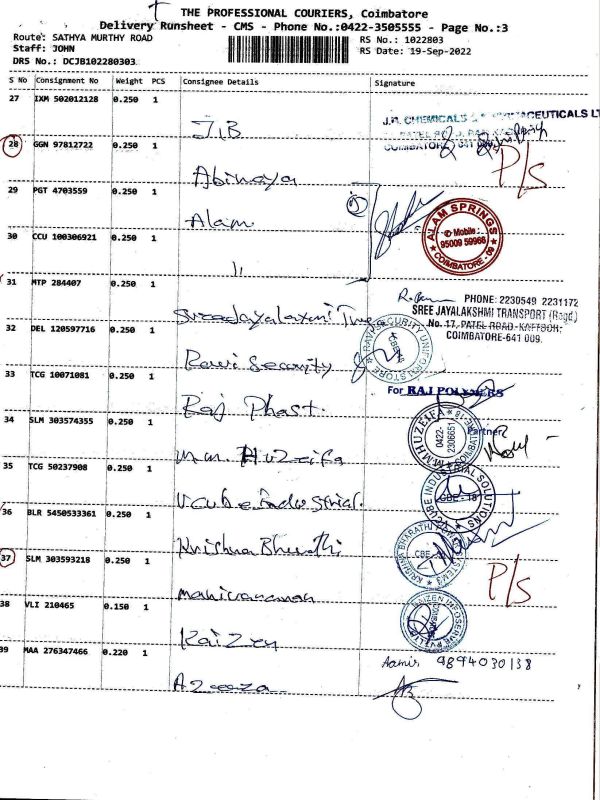 THE PROFESSIONAL COURIERS, Coimbatore
Delivery Runsheet - CMS - Phone No.:0422-3505555 - Page No.:3
Route: SATHYA MURTHY ROAD RS No.: 1022803
Staff: JOHN RS Date: 19-Sep-2022
DRS No.: DCJB102280303
S No Consignment No Weight PCS Consignee Details Signature
27 IXM 502012128 0.250 1
J.R. CHEMICALS
JIB
28 GGN 97812722 0.250 1 COIMBATORE - 641
P/S
Abinaya
29 PGT 4703559 0.250 1
Alam
ALAM SPRINGS Mobile: 95009 59966 COIMBATORE - 09
30 CCU 100306921 0.250 1
11
31 MTP 284407 0.250 1
PHONE: 2230549 2231172
SREE JAYALAKSHMI TRANSPORT (Regd)
Sreejayalaxmi
No. 17, PATEL ROAD, KATTOOR,
COIMBATORE-641 009.
32 DEL 120597716 0.250 1
RAVI SECURITY UNIFORM STORE CBE
Ravi Security
33 TCG 10071081 0.250 1
For RAJ POLYMERS
Raj Phast.
34 SLM 303574355 0.250 1
M.M.HUZEIFA 0422-2306651
Partner
M.M. Huzeifa
35 TCG 50237908 0.250 1
VCUBE INDUSTRIAL SOLUTIONS CBE - 18
Vcube Industrial.
36 BLR 5450533361 0.250 1
KRISHNA BHARATHI POWER SYSTEMS CBE
Krishna Bharathi
37 SLM 303593218 0.250 1
P/S
Manivannan
38 VLI 210465 0.150 1
KAIZEN INFOSERVE
Kaizen
39 MAA 276347466 0.220 1
Aamir 9894030138
Azeeza